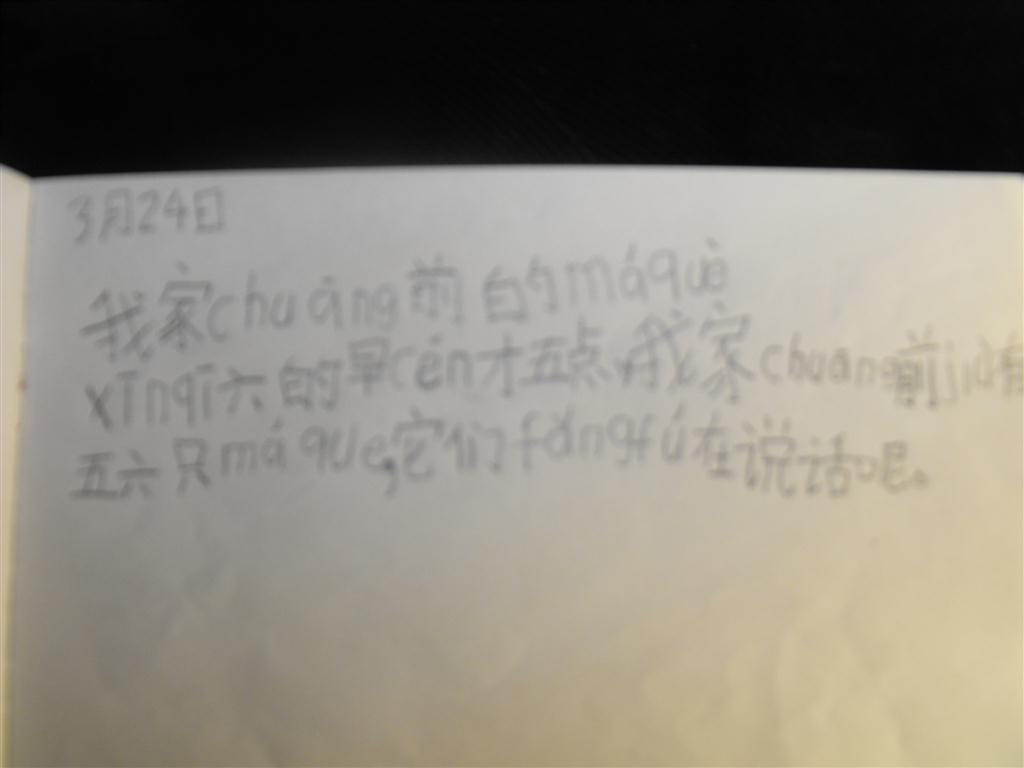 3月24日
我家chuāng前的máquè
xīngqī六的早cén才五点,我家chuāng前jiù有
五六只máque,它们fǎngfú在说话呢。